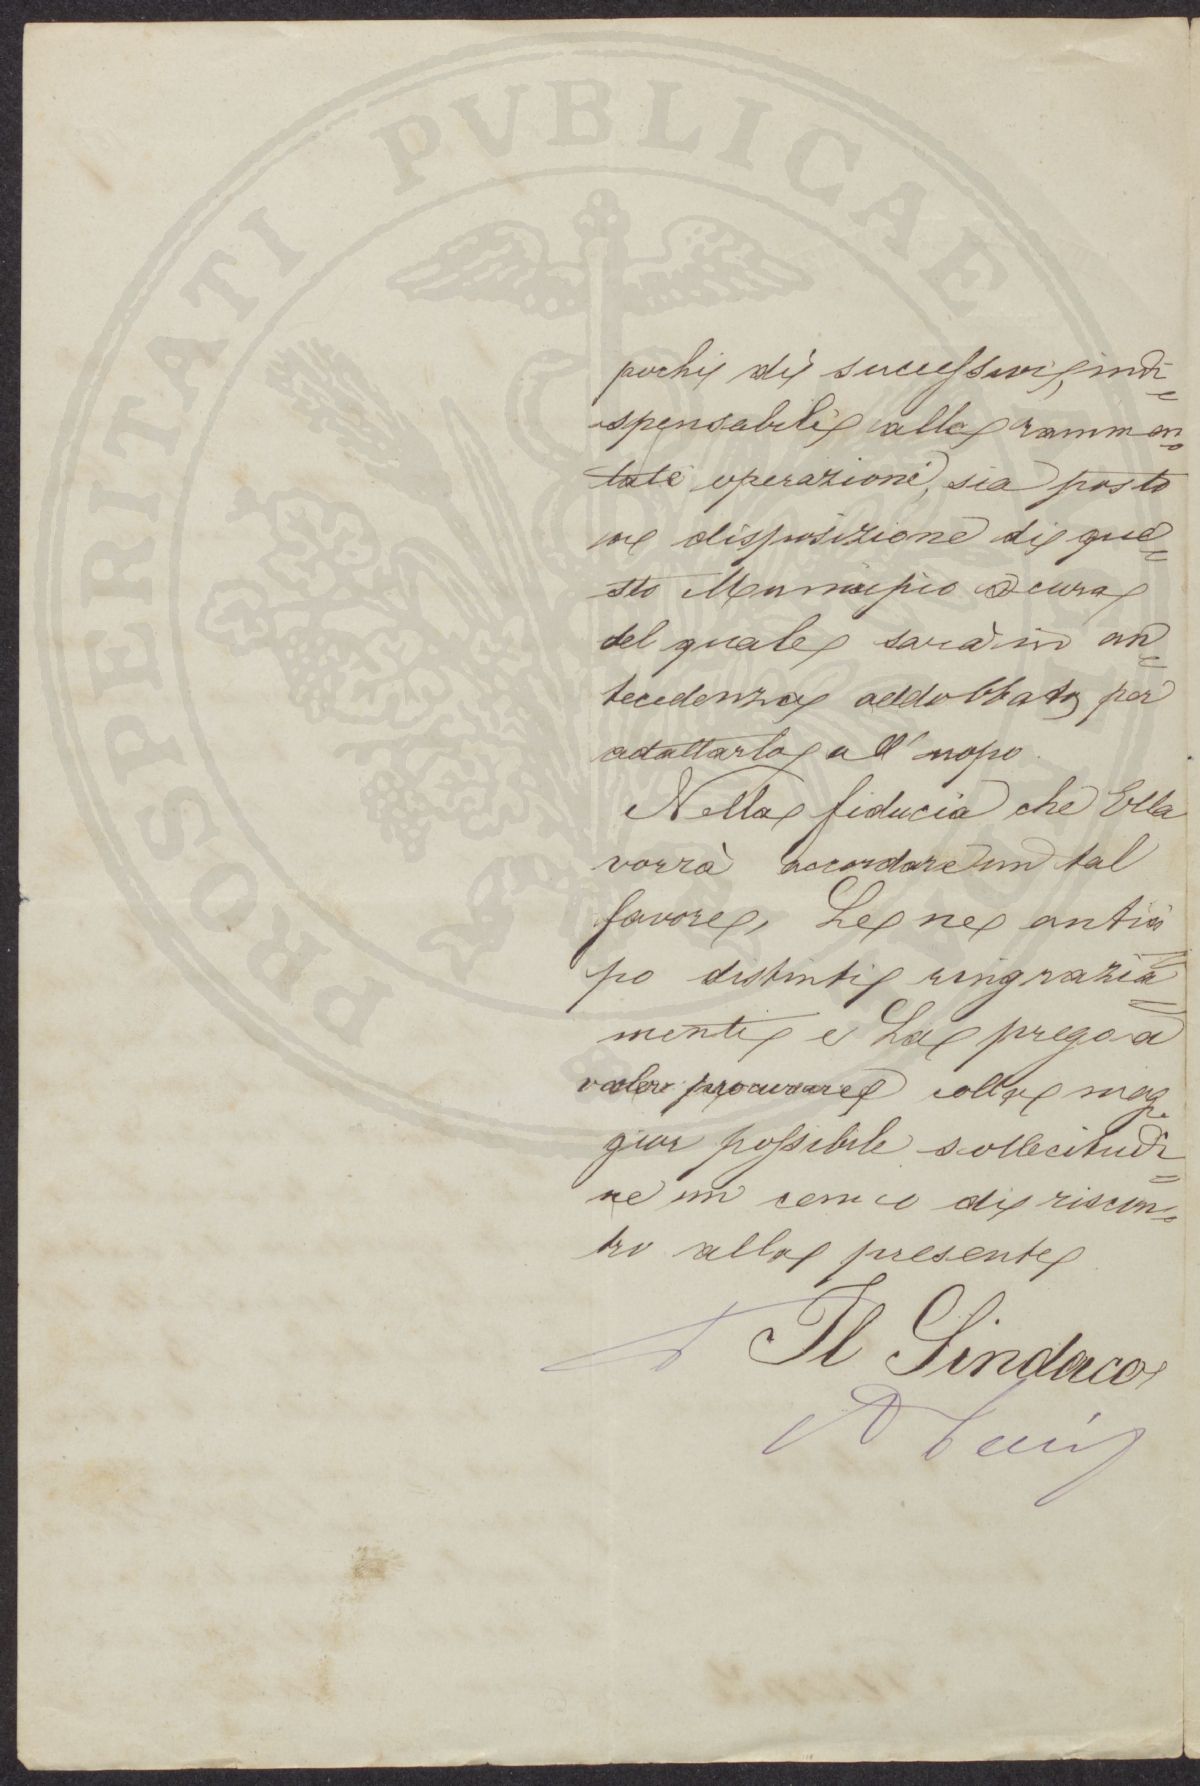 PROSPERITATI PVBLICAE
pochi dì successivi, indi=
spensabili alla rammen=
tate operazioni, sia posto
a disposizione di que=
sto Municipio a cura
del quale sarà in an=
tecedenza addobbato per
adattarlo all'uopo.
Nella fiducia che Ella
vorrà accordare un tal
favore, Le ne antici
po distinti ringrazia=
menti e La prego a
voler procurare colla mag=
gior possibile sollecitudi=
ne un cenno di riscon=
tro alla presente
Il Sindaco